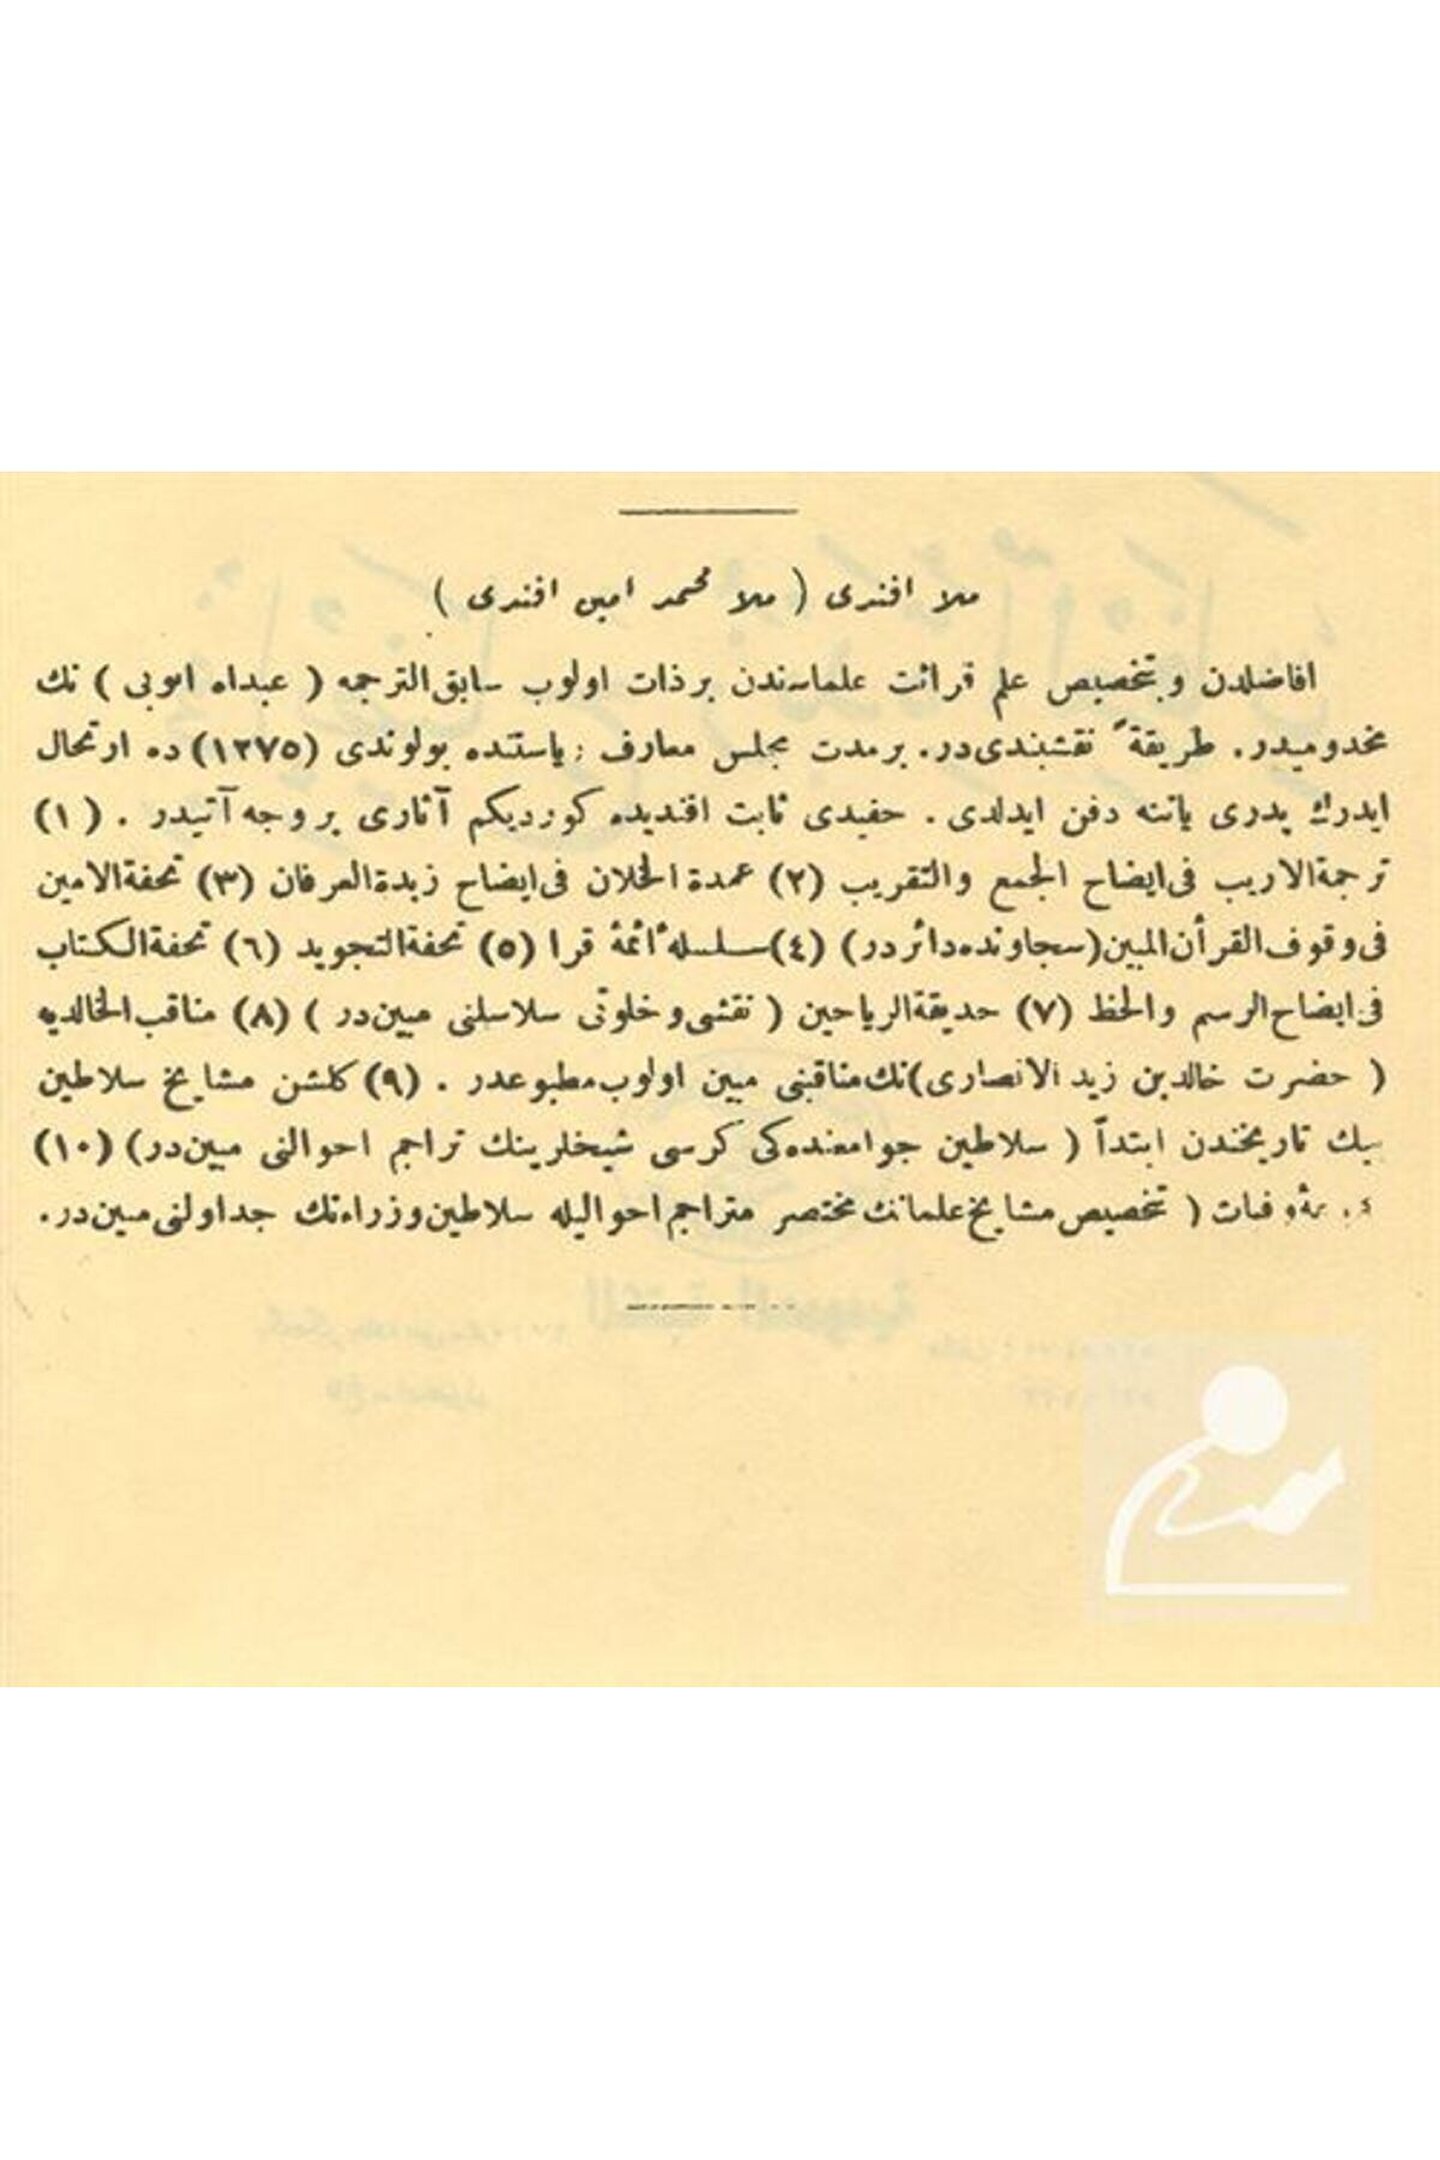 ملا افندی ( ملا محمد امین افندی )
افاضلدن و بتخصیص علم قرائت علماسندن برذات اولوب سابق‌الترجمه ( عبداه ایوبی ) نك
مخدومیدر. طریقةً نقشبندی‌در. برمدت مجلس معارف ریاستنده بولوندی (۱۲۷٥) ده ارتحال
ایدرك پدری یاننه دفن ایدلدی. حفیدی ثابت افندیده کوردیکم آثاری بروجه آتیدر. (۱)
ترجمةالاریب فی‌ایضاح الجمع والتقریب (۲) عمدة الخلان فی‌ایضاح زبدةالعرفان (۳) تحفةالامین
فی‌وقوف‌القرأن‌المبین(سجاونده‌دائردر) (٤)سلسلۀ ائمۀ قرا (٥) تحفةالتجوید (٦) تحفةالکتاب
فی‌ایضاح‌الرسم والخط (۷) حدیقةالریاحین ( نقشی‌وخلوتی سلاسلنی مبین‌در ) (۸) مناقب‌الخالدیه
( حضرت خالدبن زید الانصاری)نك‌مناقبنی مبین اولوب‌مطبوعدر . (۹) کلشن مشایخ سلاطین
بیك تاریخندن ابتداً ( سلاطین جوامعنده‌کی کرسی شیخلرینك تراجم احوالنی مبین‌در) (۱۰)
وفیات ( تخصیص مشایخ‌علمانك‌مختصر متراجم‌احوالیله سلاطین‌وزراءنك جداولنی‌مبین‌در.